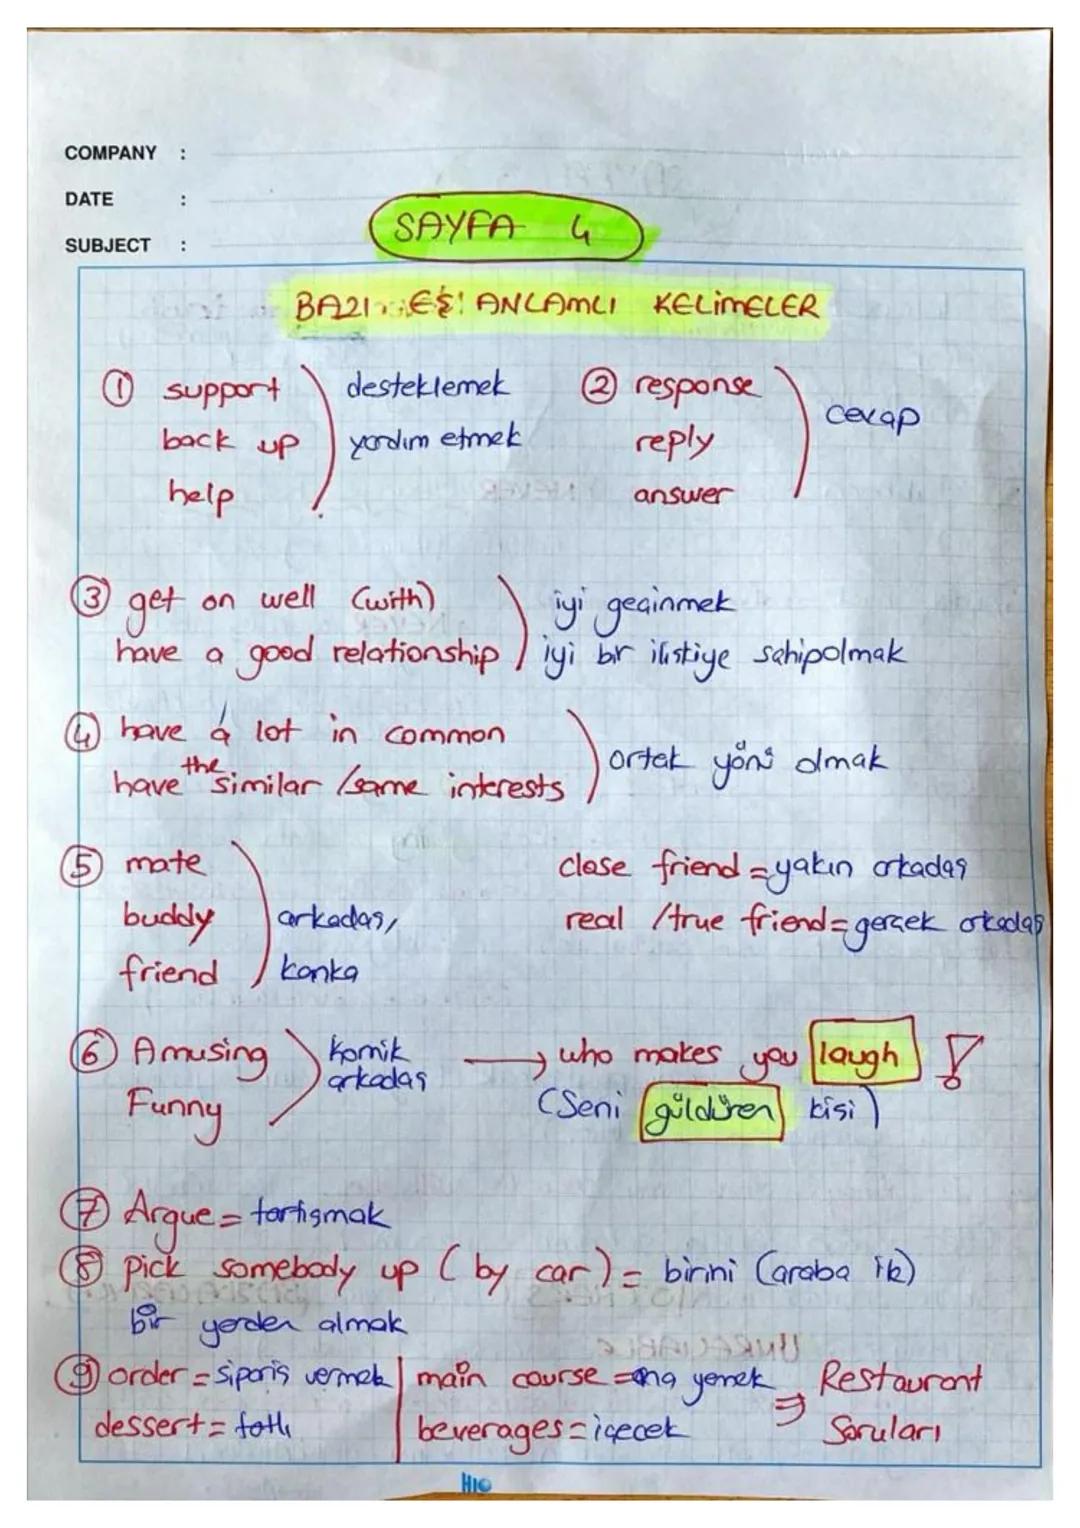 COMPANY :
DATE :
SUBJECT :
SAYFA 4
BAZI EŞ ANLAMLI KELİMELER
① support
back up
help
desteklemek
yardım etmek
② response
reply
answer
cevap
③ get on well (with)
have a good relationship
iyi geçinmek
iyi bir ilişkiye sahipolmak
④ have a lot in common
have the similar /same interests
ortak yönü olmak
⑤ mate
buddy
friend
arkadaş,
kanka
close friend = yakın arkadaş
real /true friend = gerçek arkadaş
⑥ Amusing
Funny
komik
arkadaş
→ who makes you laugh !
(Seni güldüren kişi)
⑦ Argue = tartışmak
⑧ pick somebody up (by car) = birini (araba ile)
bir yerden almak
⑨ order = sipariş vermek
dessert = tatlı
main course = ana yemek
beverages = içecek
⇒ Restaurant
Soruları
HIO